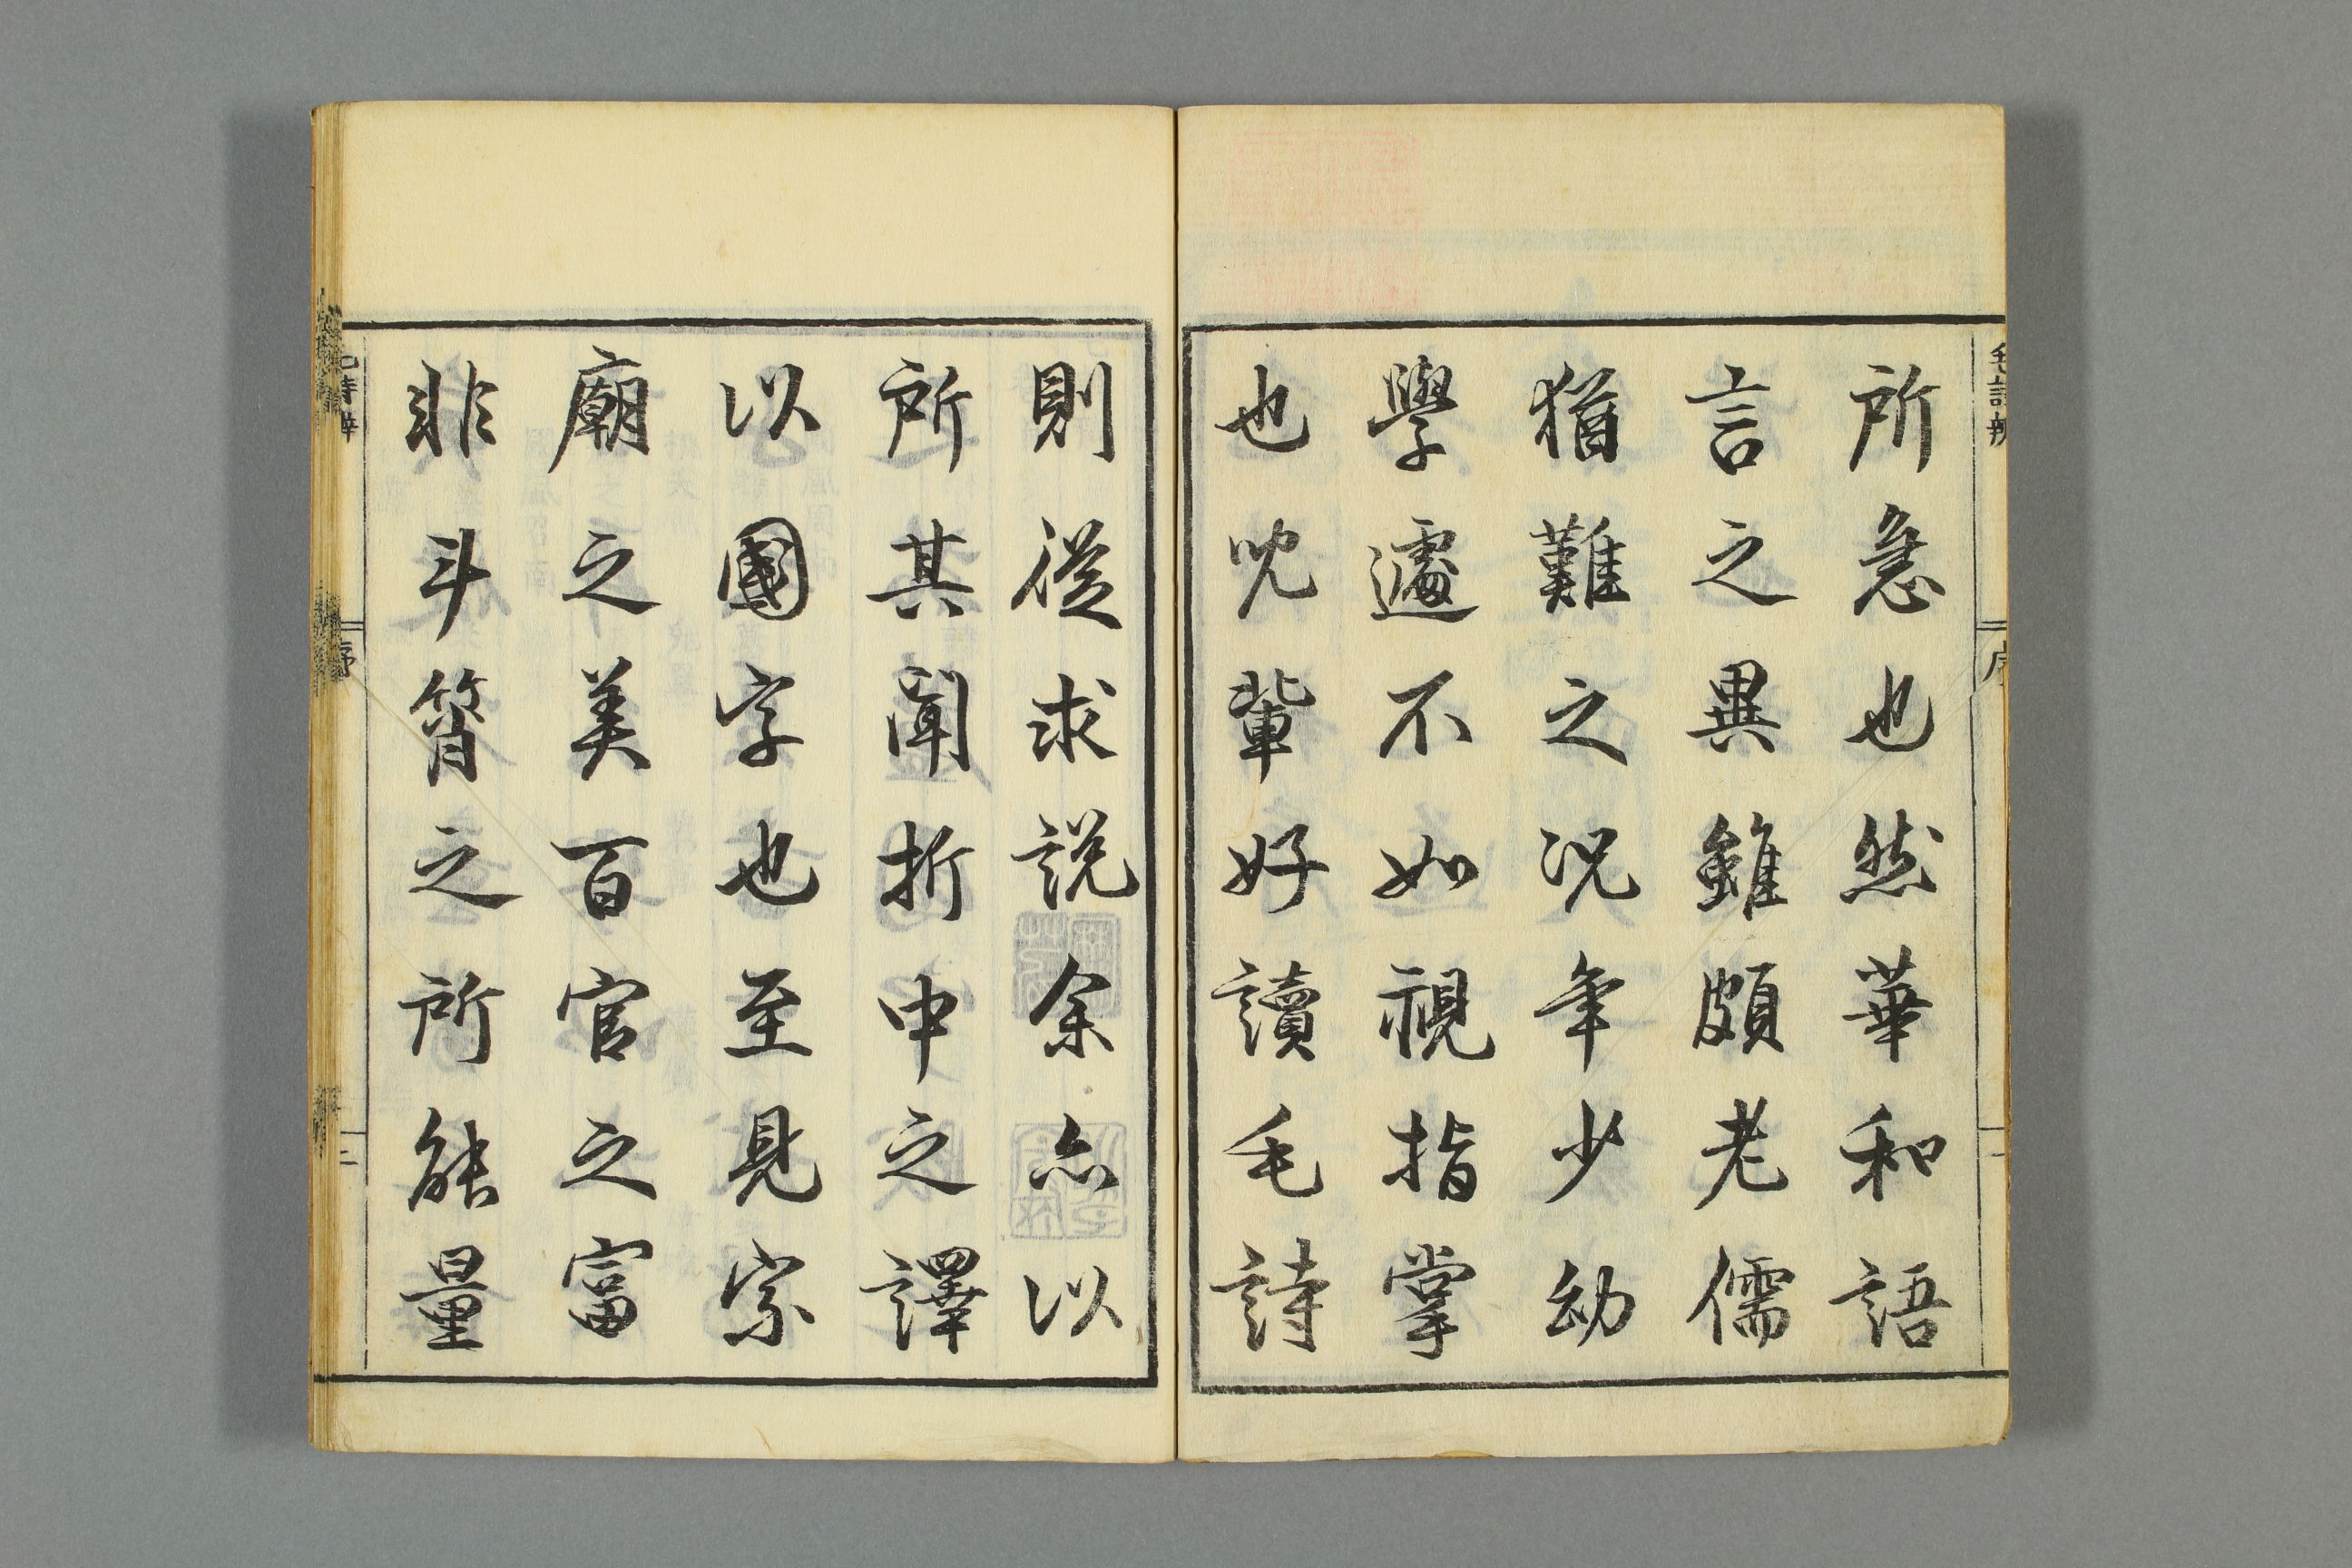 所急也然華和語
言之異雖頗老儒
猶難之況年少幼
學遽不如視指掌
也兒輩好讀毛詩
則從求說余亦以
所其聞折中之譯
以國字也至見宗
廟之美百官之富
非斗筲之所能量
序
二